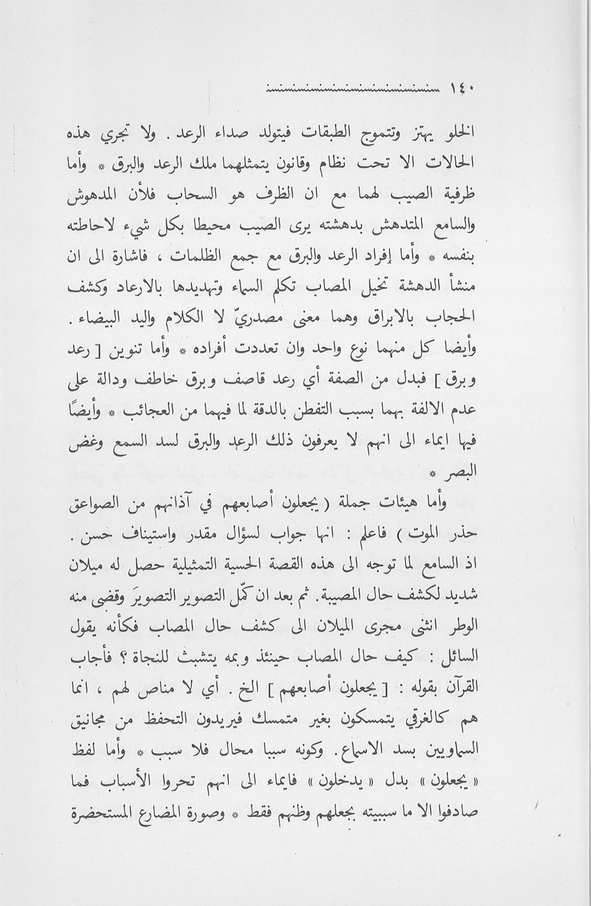 ١٤٠
الخلو يهتز وتتموج الطبقات فيتولد صداء الرعد . ولا تجري هذه
الحالات الا تحت نظام وقانون يتمثلهما ملك الرعد والبرق * وأما
ظرفية الصيب لهما مع ان الظرف هو السحاب فلأن المدهوش
والسامع المتدهش بدهشته يرى الصيب محيطا بكل شيء لاحاطته
بنفسه * وأما إفراد الرعد والبرق مع جمع الظلمات ، فاشارة الى ان
منشأ الدهشة تخيل المصاب تكلم السماء وتهديدها بالارعاد وكشف
الحجاب بالابراق وهما معنى مصدريّ لا الكلام واليد البيضاء .
وأيضا كل منهما نوع واحد وان تعددت أفراده * وأما تنوين [ رعد
وبرق ] فبدل من الصفة أي رعد قاصف وبرق خاطف ودالة على
عدم الالفة بهما بسبب التفطن بالدقة لما فيهما من العجائب * وأيضًا
فيها ايماء الى انهم لا يعرفون ذلك الرعد والبرق لسد السمع وغض
البصر *
وأما هيئات جملة ( يجعلون أصابعهم في آذانهم من الصواعق
حذر الموت ) فاعلم : انها جواب لسؤال مقدر واستيناف حسن .
اذ السامع لما توجه الى هذه القصة الحسية التمثيلية حصل له ميلان
شديد لكشف حال المصيبة. ثم بعد ان كمّل التصوير التصويرَ وقضى منه
الوطر انثنى مجرى الميلان الى كشف حال المصاب فكأنه يقول
السائل : كيف حال المصاب حينئذ وبمه يتشبث للنجاة ؟ فأجاب
القرآن بقوله : [ يجعلون أصابعهم ] الخ . أي لا مناص لهم ، انما
هم كالغرقي يتمسكون بغير متمسك فيريدون التحفظ من مجانيق
السماويين بسد الاسماع. وكونه سببا محال فلا سبب * وأما لفظ
« يجعلون » بدل « يدخلون » فايماء الى انهم تحروا الأسباب فما
صادفوا الا ما سببيته بجعلهم وظنهم فقط * وصورة المضارع المستحضرة